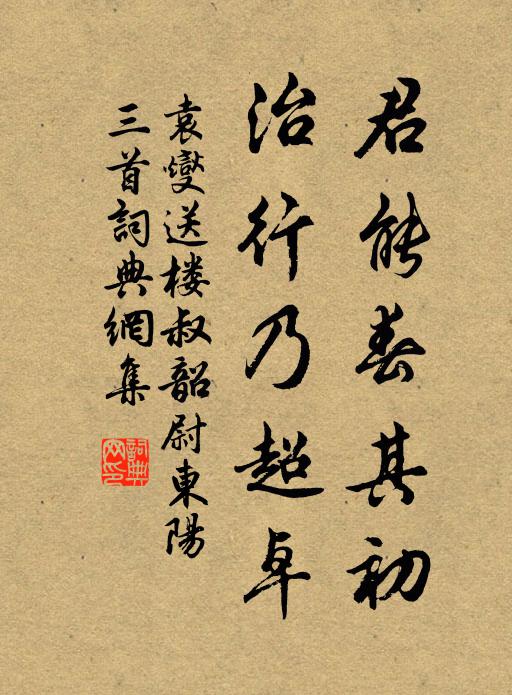 君能春其初
治行乃超卓
袁燮送楼叔韶尉東陽
三首詞典網集
詞典網印